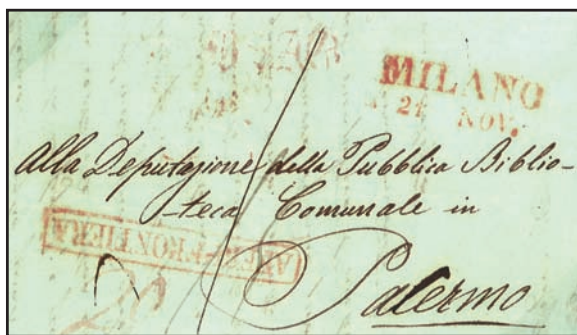 MILANO
24 NOV.
Alla Deputazione della Pubblica Biblio-
teca Comunale in
Palermo